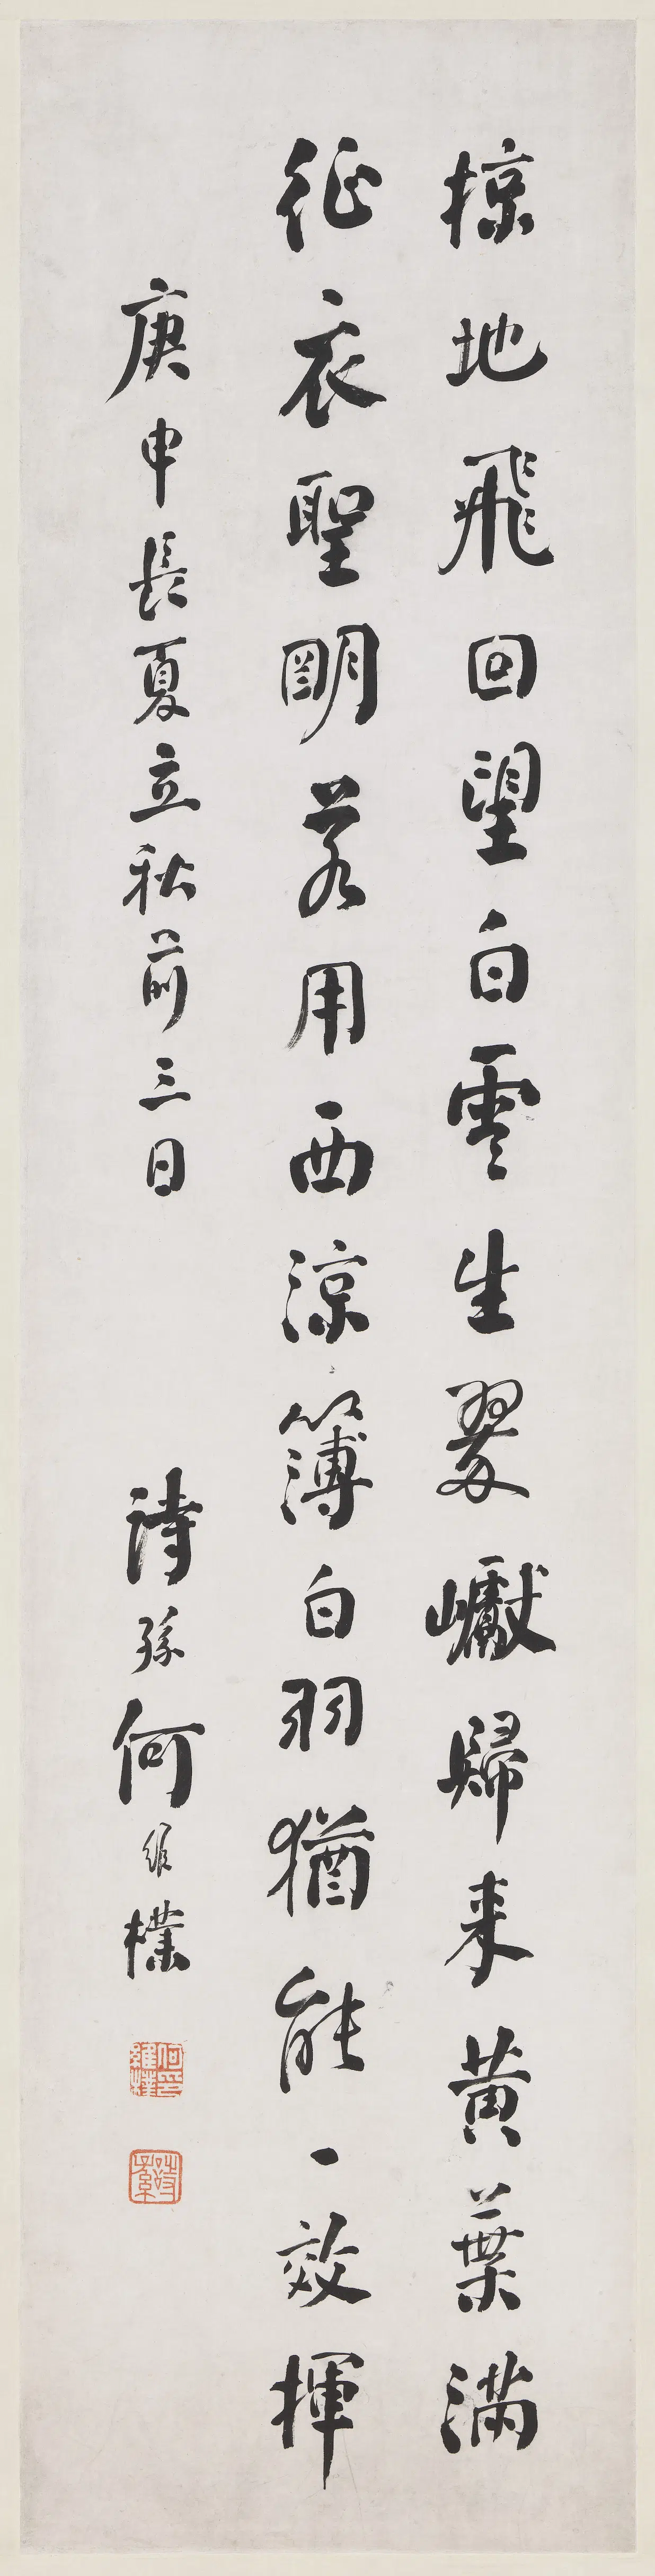 掠地飛回望白雲生翠巘歸来黄葉滿
征衣聖明若用西涼簿白羽猶能一效揮
庚申長夏立秋前三日
詩孫何維樸
何印維樸
詩孫